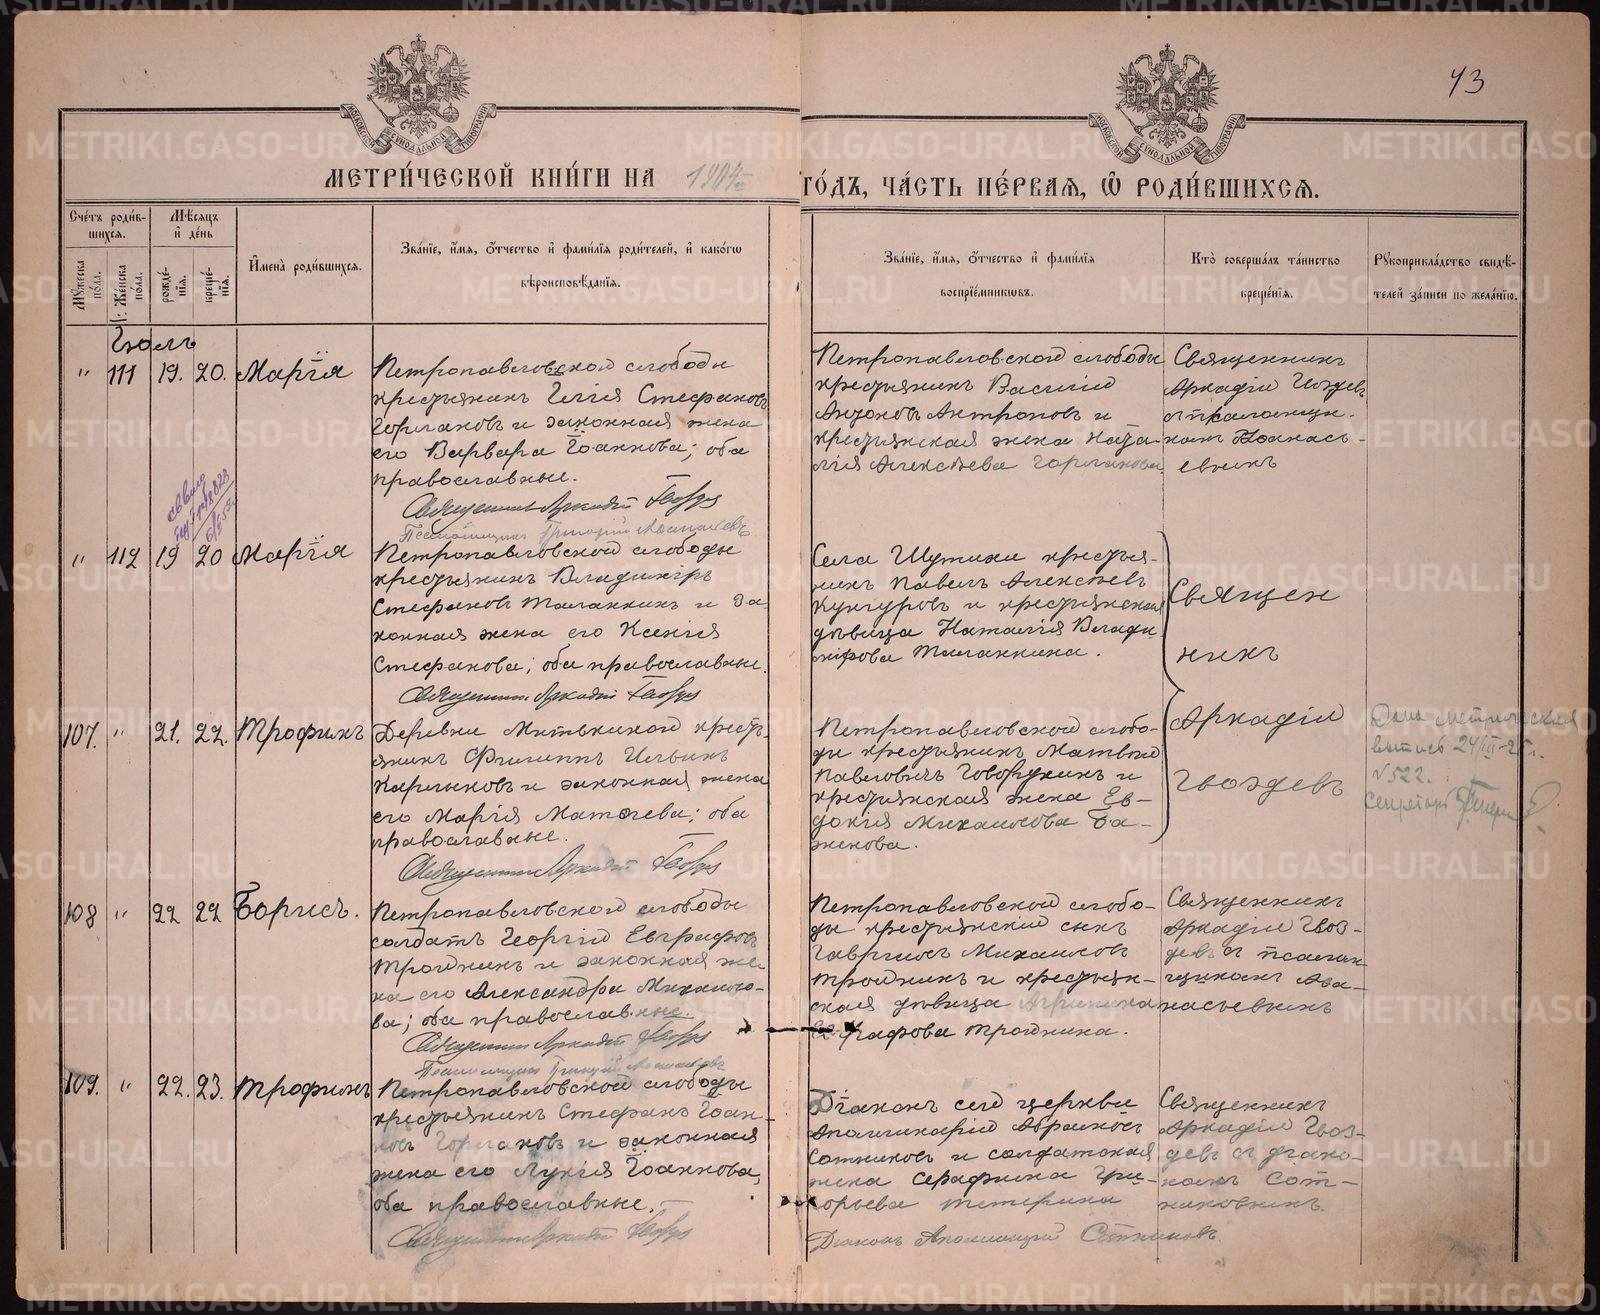 43
МЕТРИ́ЧЕСКОЙ КНИ́ГИ НА 1904 ГО́ДЪ, ЧА́СТЬ ПЕ́РВАЯ, Ѡ РОДИ́ВШИХСЯ.
Сче́тъ роди́в-
шихся.
Мѣ́сяцъ
и҆ де́нь
Мꙋ́жеска по́ла.
Же́нска по́ла.
рожде́-
нїя.
креще́-
нїя.
И҆мена̀ роди́вшихся.
Зва́нїе, и҆́мя, ѻ҆́тчество и҆ фами́лїя роди́телей, и҆ како́гѡ
вѣроисповѣ́данїя.
Зва́нїе, и҆́мя, ѻ҆́тчество и҆ фами́лїя
воспрїе́мникѡвъ.
Кто̀ соверша́лъ та́инство
креще́нїя.
Рꙋкоприкла́дство свидѣ́-
телей за́писи по жела́нїю.
Іюль
" 111 19. 20. Марія
Петропавловской слободы
крестьянинъ Илія Стефановъ
Горлановъ и законная жена
его Варвара Іоаннова; оба
православные.
Священникъ Аркадій Гвоздевъ
Псаломщикъ Григорій Аѳанасьевъ
Петропавловской слободы
крестьянинъ Василій
Антроповъ и
крестьянская жена Ната-
лія Алексѣева Горланова
Священникъ
Аркадій Гвоздевъ
съ псаломщи-
комъ Аѳанась-
евымъ
" 112 19 20 Марія
Петропавловской слободы
крестьянинъ Владиміръ
Стефановъ Талантинъ и за-
конная жена его Ксенія
Стефанова; оба православные.
Священникъ Аркадій Гвоздевъ
Села Шутихи крестья-
нинъ Павелъ Алексѣевъ
Кунгуровъ и крестьянская
дѣвица Наталія Влади-
мірова
Священ
никъ
Аркадій
Гвоздевъ
107. " 21. 22. Трофимъ
Деревни Митькиной кресть-
янинъ Филиппъ Ильинъ
и законная жена
его Марія Матѳеева; оба
православные.
Священникъ Аркадій Гвоздевъ
Петропавловской слобо-
ды крестьянинъ Матвѣй
Павловичъ Говорухинъ и
крестьянская жена Ев-
докія Михайлова Ба-
женова.
Дана метрическая
выпись 24/III-2 г.
№522.
Секретарь
108 " 22 22 Борисъ.
Петропавловской слободы
солдатъ Георгій Евграфовъ
Тройнинъ и законная же-
на его Александра Михайло-
ва; оба православные.
Священникъ Аркадій Гвоздевъ
Псаломщикъ Григорій Аѳанасьевъ
Петропавловской слобо-
ды крестьянскій сынъ
Гавриилъ Михаиловъ
Тройнинъ и крестьян-
ская дѣвица Агрипина
Евграфова Тройнина.
Священникъ
Аркадій Гвоз-
девъ съ псалом-
щикомъ Аѳа-
насьевымъ
109. " 22. 23. Трофимъ
Петропавловской слободы
крестьянинъ Стефанъ Іоан-
новъ Горлановъ и законная
жена его Лукія Іоаннова,
оба православные.
Священникъ Аркадій Гвоздевъ
Діаконъ сей церкви
Аполлинарій Абрамовъ
Сотниковъ и солдатская
жена Серафима Гри-
горьева Тетерина
Діаконъ Аполлинарій Сотниковъ.
Священникъ
Аркадій Гвоз-
девъ съ діако-
номъ Сот-
никовымъ.
METRIKI.GASO-URAL.RU